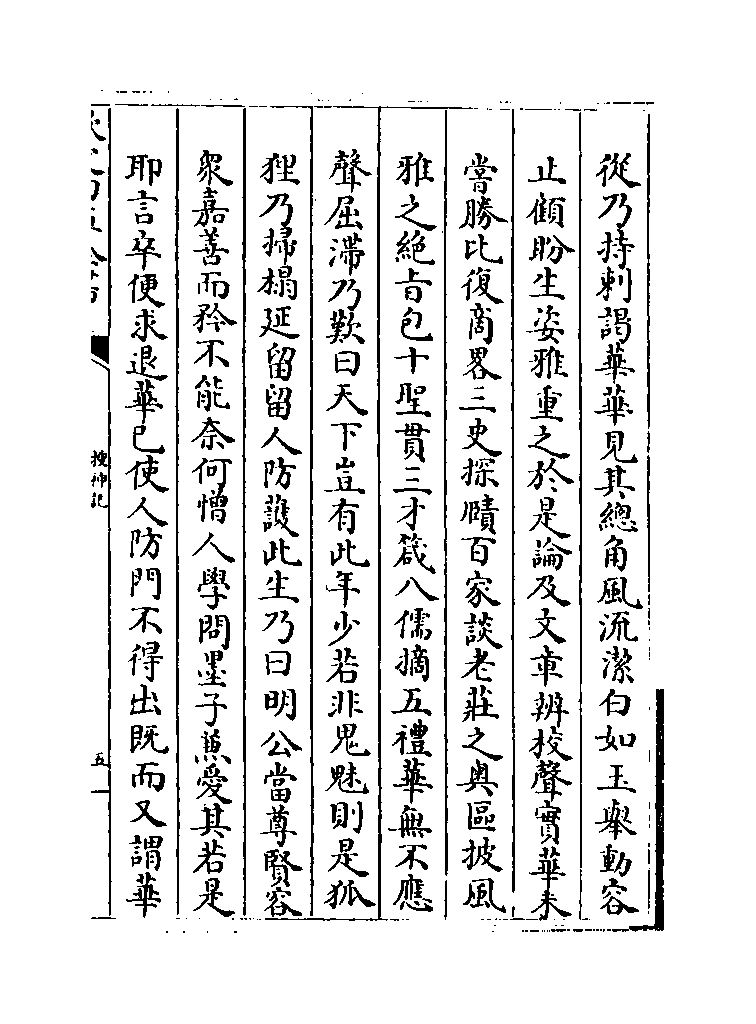 從乃持刺謁華華見其總角風流潔白如玉舉動容
止顧盼生姿雅重之於是論及文章辨校聲實華未
嘗勝比復商畧三史探賾百家談老莊之奥區披風
雅之絶㫖包十聖貫三才箴八儒擿五禮華無不應
聲屈滯乃歎曰天下豈有此年少若非鬼魅則是狐
狸乃掃榻延留留人防䕶此生乃曰明公當尊賢容
衆嘉善而矜不能奈何憎人學問墨子兼愛其若是
耶言卒便求退華已使人防門不得出既而又謂華
搜神記
五